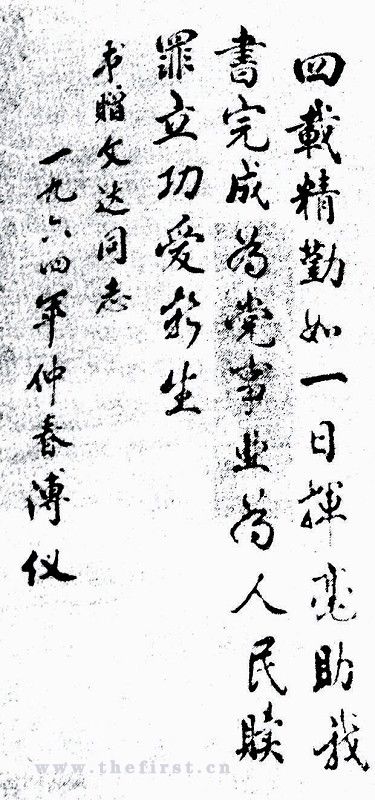 四載精勤如一日揮毫助我
書完成为党事业为人民赎
罪立功受新生
书赠文达同志
一九六四年仲春溥仪
www.thefirst.cn